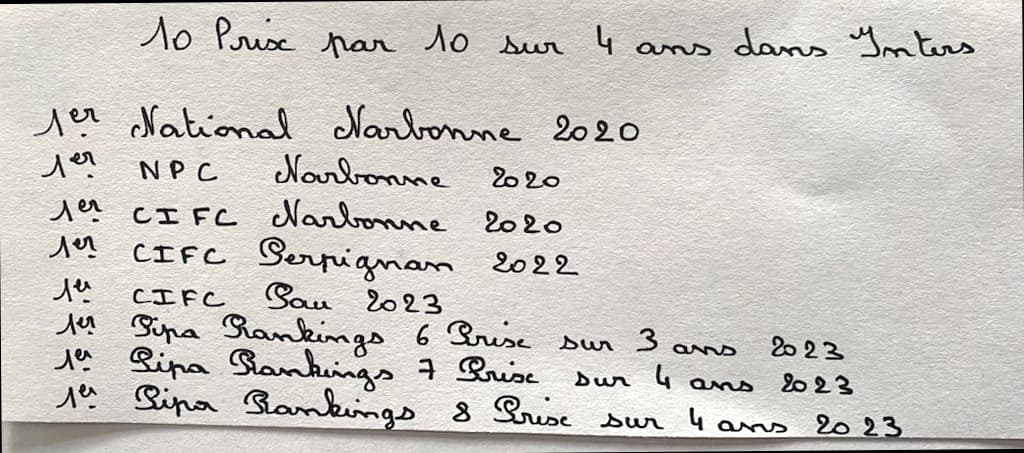 10 Prix par 10 sur 4 ans dans Inters
1er National Narbonne 2020
1er NPC Narbonne 2020
1er CIFC Narbonne 2020
1er CIFC Perpignan 2022
1er CIFC Pau 2023
1er Pipa Rankings 6 Prix sur 3 ans 2023
1er Pipa Rankings 7 Prix sur 4 ans 2023
1er Pipa Rankings 8 Prix sur 4 ans 2023